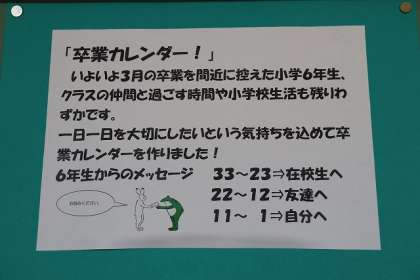 「卒業カレンダー！」
いよいよ3月の卒業を間近に控えた小学6年生、
クラスの仲間と過ごす時間や小学校生活も残りわ
ずかです。
一日一日を大切にしたいという気持ちを込めて卒
業カレンダーを作りました！
6年生からのメッセージ　33～23⇒在校生へ
22～12⇒友達へ
11～　1⇒自分へ